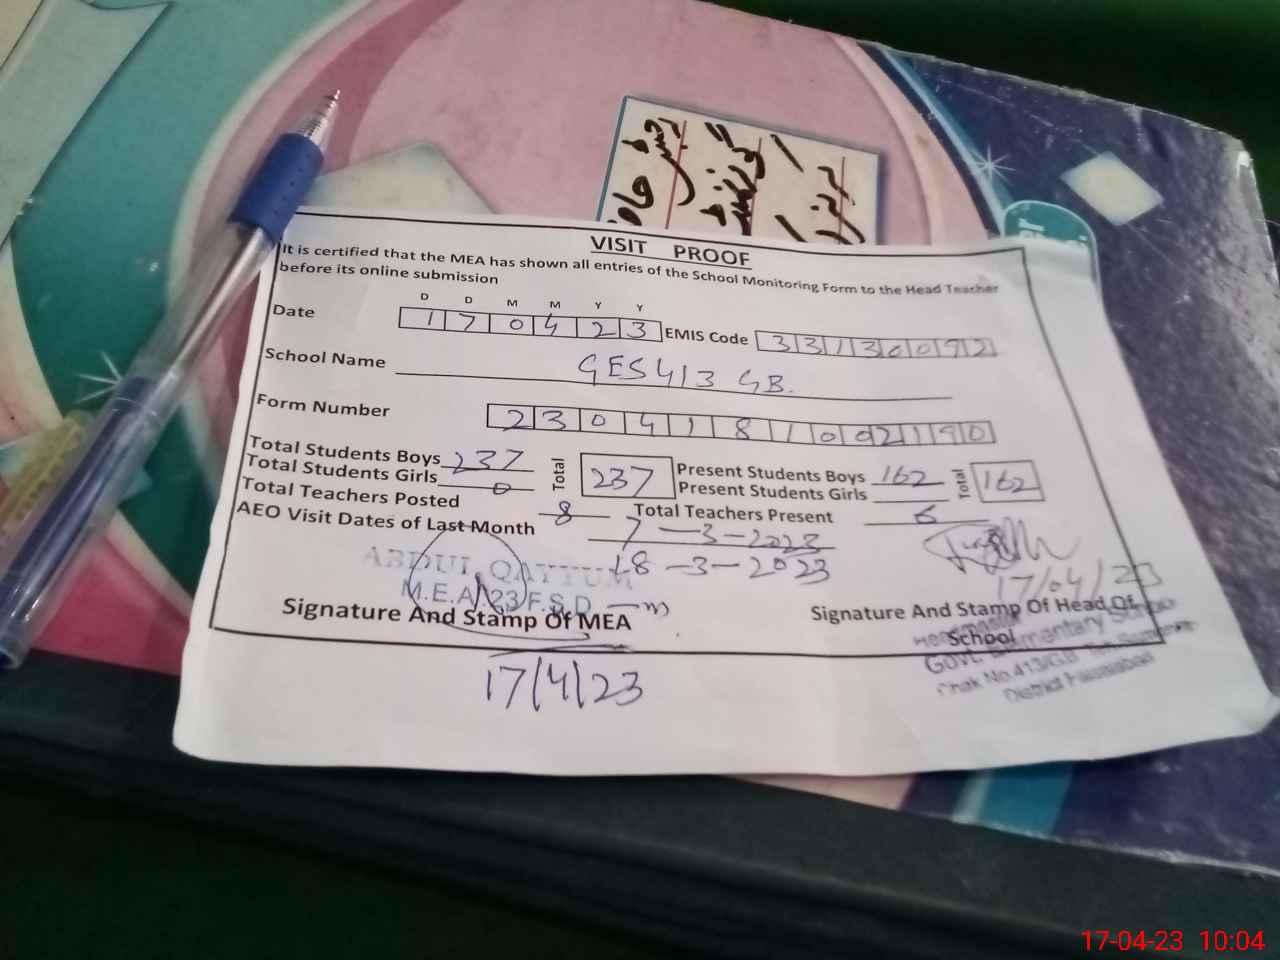 VISIT PROOF
It is certified that the MEA has shown all entries of the School Monitoring Form to the Head Teacher
before its online submission
D D M M Y Y
Date 170423 EMIS Code 33130092
School Name GES 413 GB.
Form Number 2304181002190
Total Students Boys 237 Total 237 Present Students Boys 162 Total 162
Total Students Girls 0 Present Students Girls
Total Teachers Posted 8 Total Teachers Present 6
AEO Visit Dates of Last Month 7-3-2023
18-3-2023
ABDUL QAYYUM
M.E.A.23 F.S.D
17/04/23
Signature And Stamp Of MEA
Signature And Stamp Of Head Of
School
Headmaster
Govt. Elementary School
Chak No.413/GB
District Faisalabad
17/4/23
17-04-23 10:04